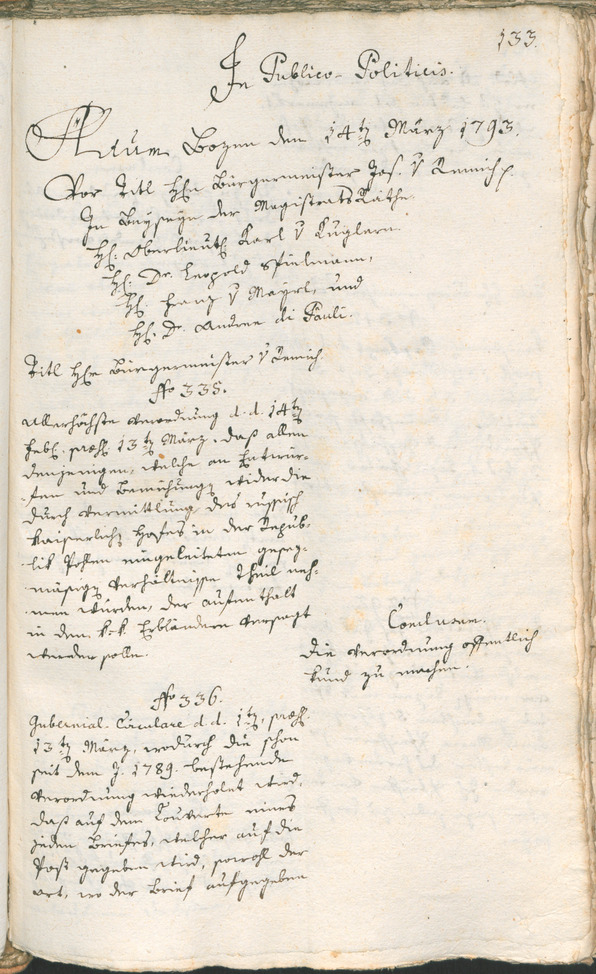 133.
In Publico-Politicis.
Actum Bozen den 14ten März 1793.
Vor Titl Hhr Bürgermeister Jos. v Remich p.
In Beyseyn der Magistrats Räthe
Hh. Oberlieut. Karl v Kuglern
Hh. Dr. Leopold Spielmann,
Hh. Franz v Mayrl, und
Hh. Dr. Andree di Pauli.
Titl Hhr Bürgermeister v Remich
No 335.
Allerhöchste Verordnung d. d. 14ten
Feb. praes. 13ten März, daß allen
denjenigen, welche an Entwür-
fen und Bemühungen wider die
durch Vermittlung des russisch
kaiserlichen Hofes in der Repub-
lik Pohlen eingeleiteten gesez-
mäsigen Verhältnisse Theil neh-
men würden, der Aufenthalt
in den k. k. Erbländern versagt
werden solle.
Conclusum.
die Verordnung offentlich
kund zu machen.
No 336.
Gubernial Circulare d. d. 1ten, praes.
13ten März, wodurch die schon
seit dem J. 1789. bestehende
Verordnung wiederholet wird,
daß auf dem Couverte eines
jeden Briefes, welcher auf die
Post gegeben wird, sowohl der
Ort, wo der Brief aufgegeben